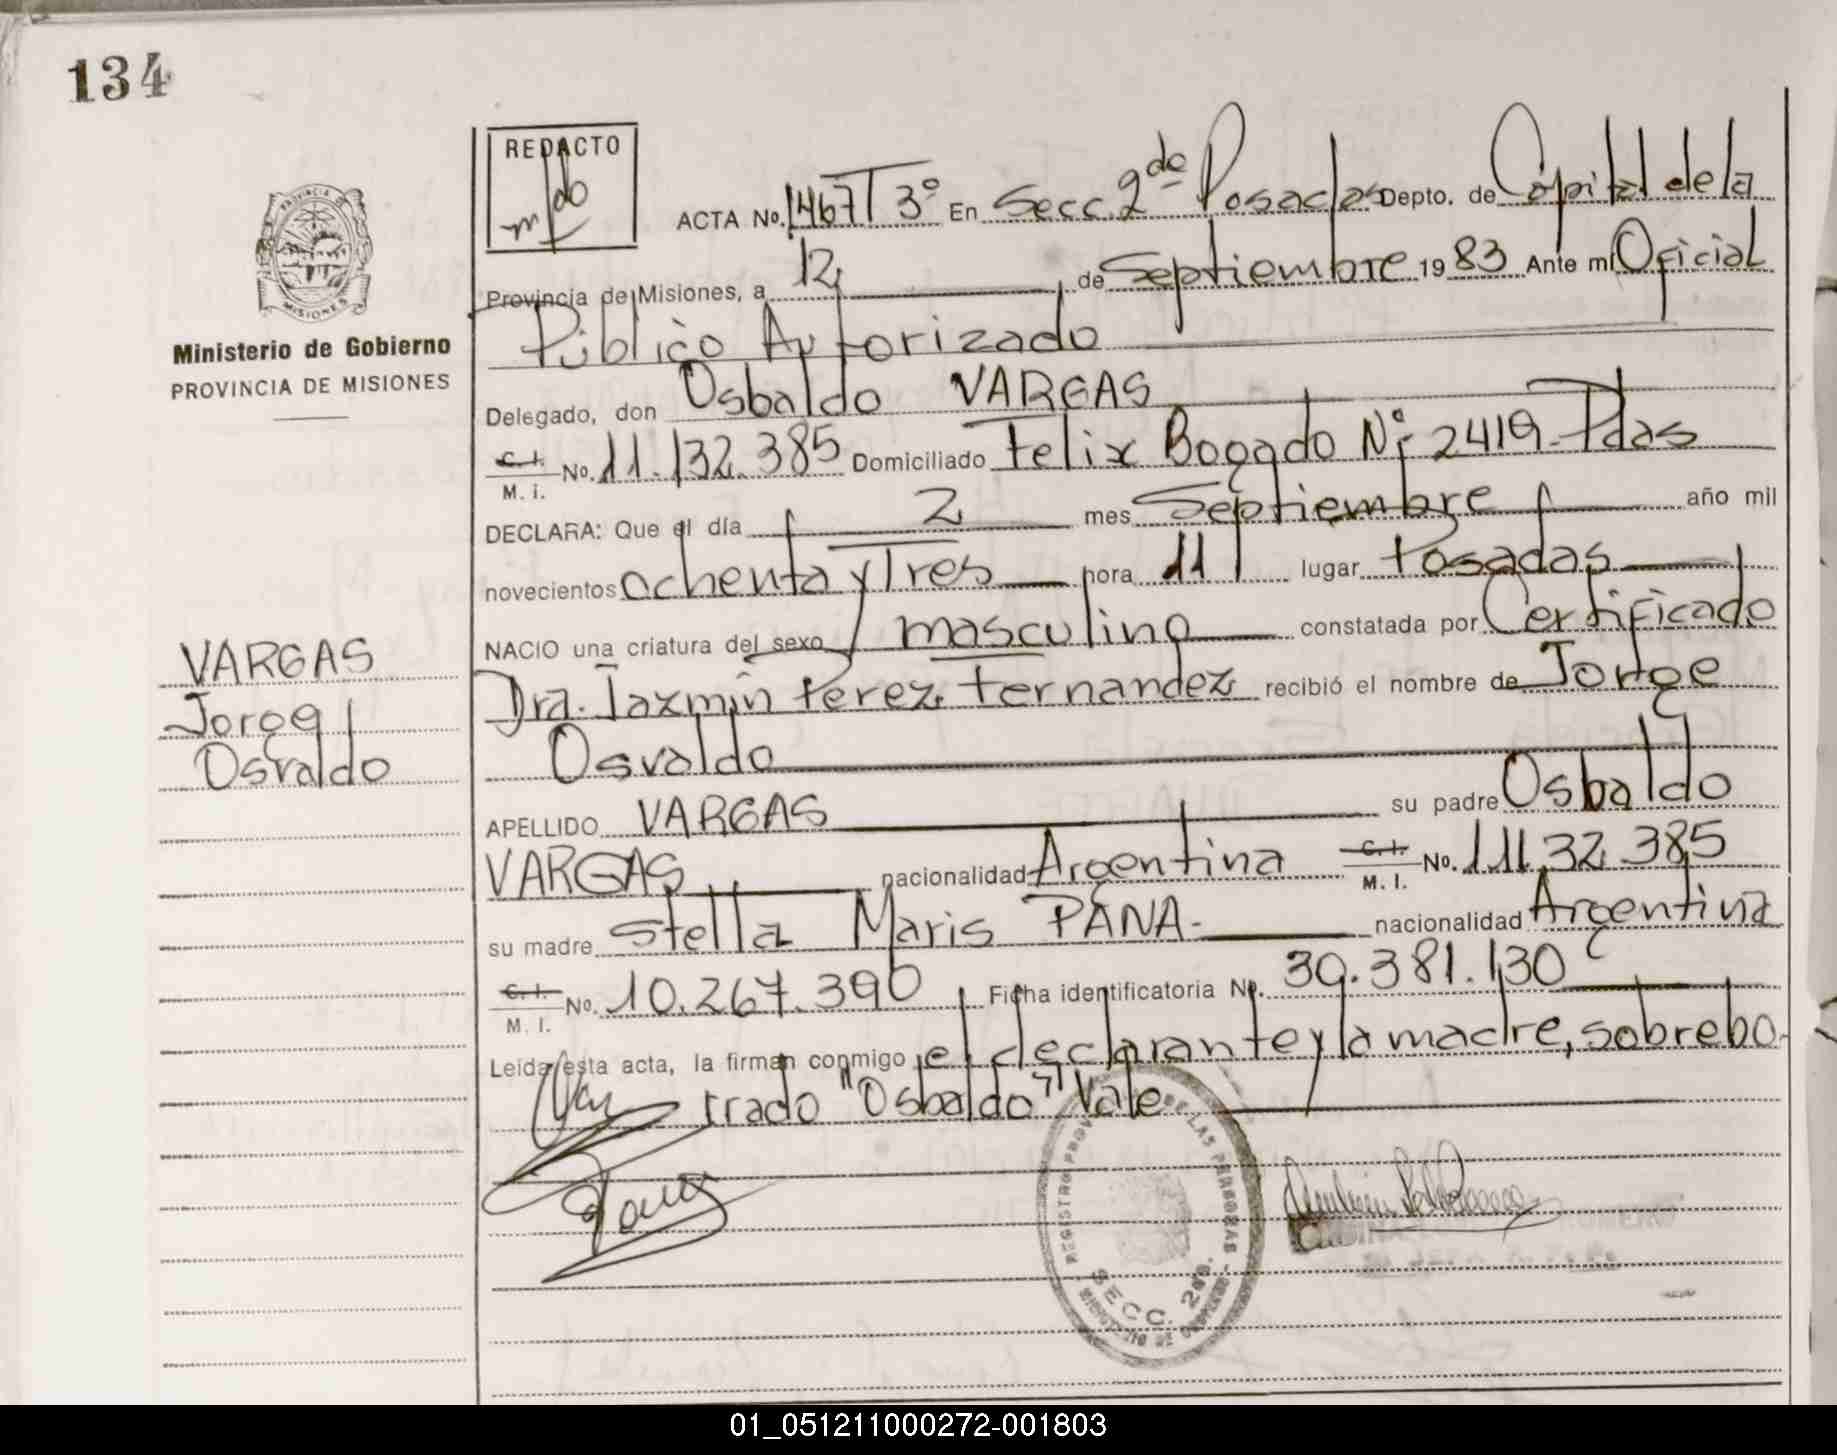 134
REDACTO
ACTA No. 1467 T 3º En Secc. 2da Posadas Depto. de Capital de la
Provincia de Misiones, a 12 de Septiembre 1983 Ante mí Oficial
Público Autorizado
Ministerio de Gobierno
PROVINCIA DE MISIONES
Delegado, don Osbaldo VARGAS
C. I. M. i. No. 11.132.385 Domiciliado Felix Bogado Nº 2419 - Pdas
DECLARA: Que el día 2 mes Septiembre año mil
novecientos ochenta y Tres hora 11 lugar Posadas
NACIO una criatura del sexo masculino constatada por Certificado
Dra. Jazmin Perez Fernandez recibió el nombre de Jorge
Osvaldo
VARGAS
Jorge
Osvaldo
APELLIDO VARGAS su padre Osbaldo
VARGAS nacionalidad Argentina C. I. M. I. No. 11.132.385
su madre Stella Maris PANA.- nacionalidad Argentina
C. I. M. I. No. 10.267.390 Ficha identificatoria No. 30.381.130
Leida esta acta, la firman conmigo el declarante y la madre, sobrebo-
rrado "Osbaldo" Vale
REGISTRO PROV. DE LAS PERSONAS
SECC. 2da.
01_051211000272-001803